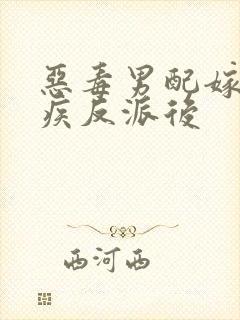 惡毒男配嫁
疾反派後
西河西